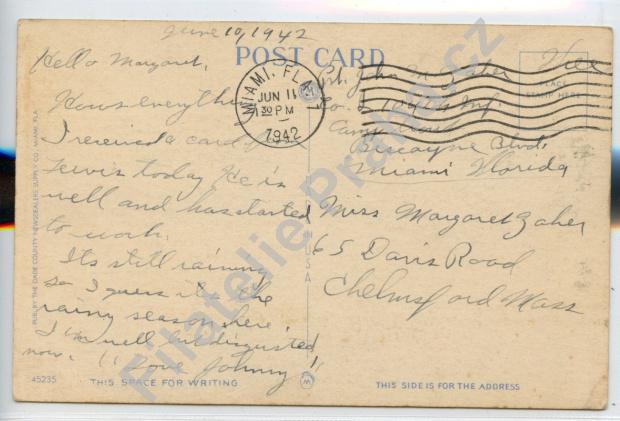 June 10, 1942
POST CARD
Hello Margaret,
Hows everything
I received a card
Lewis today He is
well and has started
to work.
Its still raining
so I guess its the
rainy season here.
I'm well but disgusted
now. "Love Johnny"
MIAMI, FLA.
JUN 11
1 30 PM
1942
Pvt. John M. Zaher
Free
PLACE
STAMP HERE
Biscayne Blvd.
Miami Florida
Miss Margaret Zaher
65 Davis Road
Chelmsford Mass
PUB. BY THE DADE COUNTY NEWSDEALERS SUPPLY CO., MIAMI, FLA.
45235
THIS SPACE FOR WRITING
THIS SIDE IS FOR THE ADDRESS
Filatelie Praha.cz